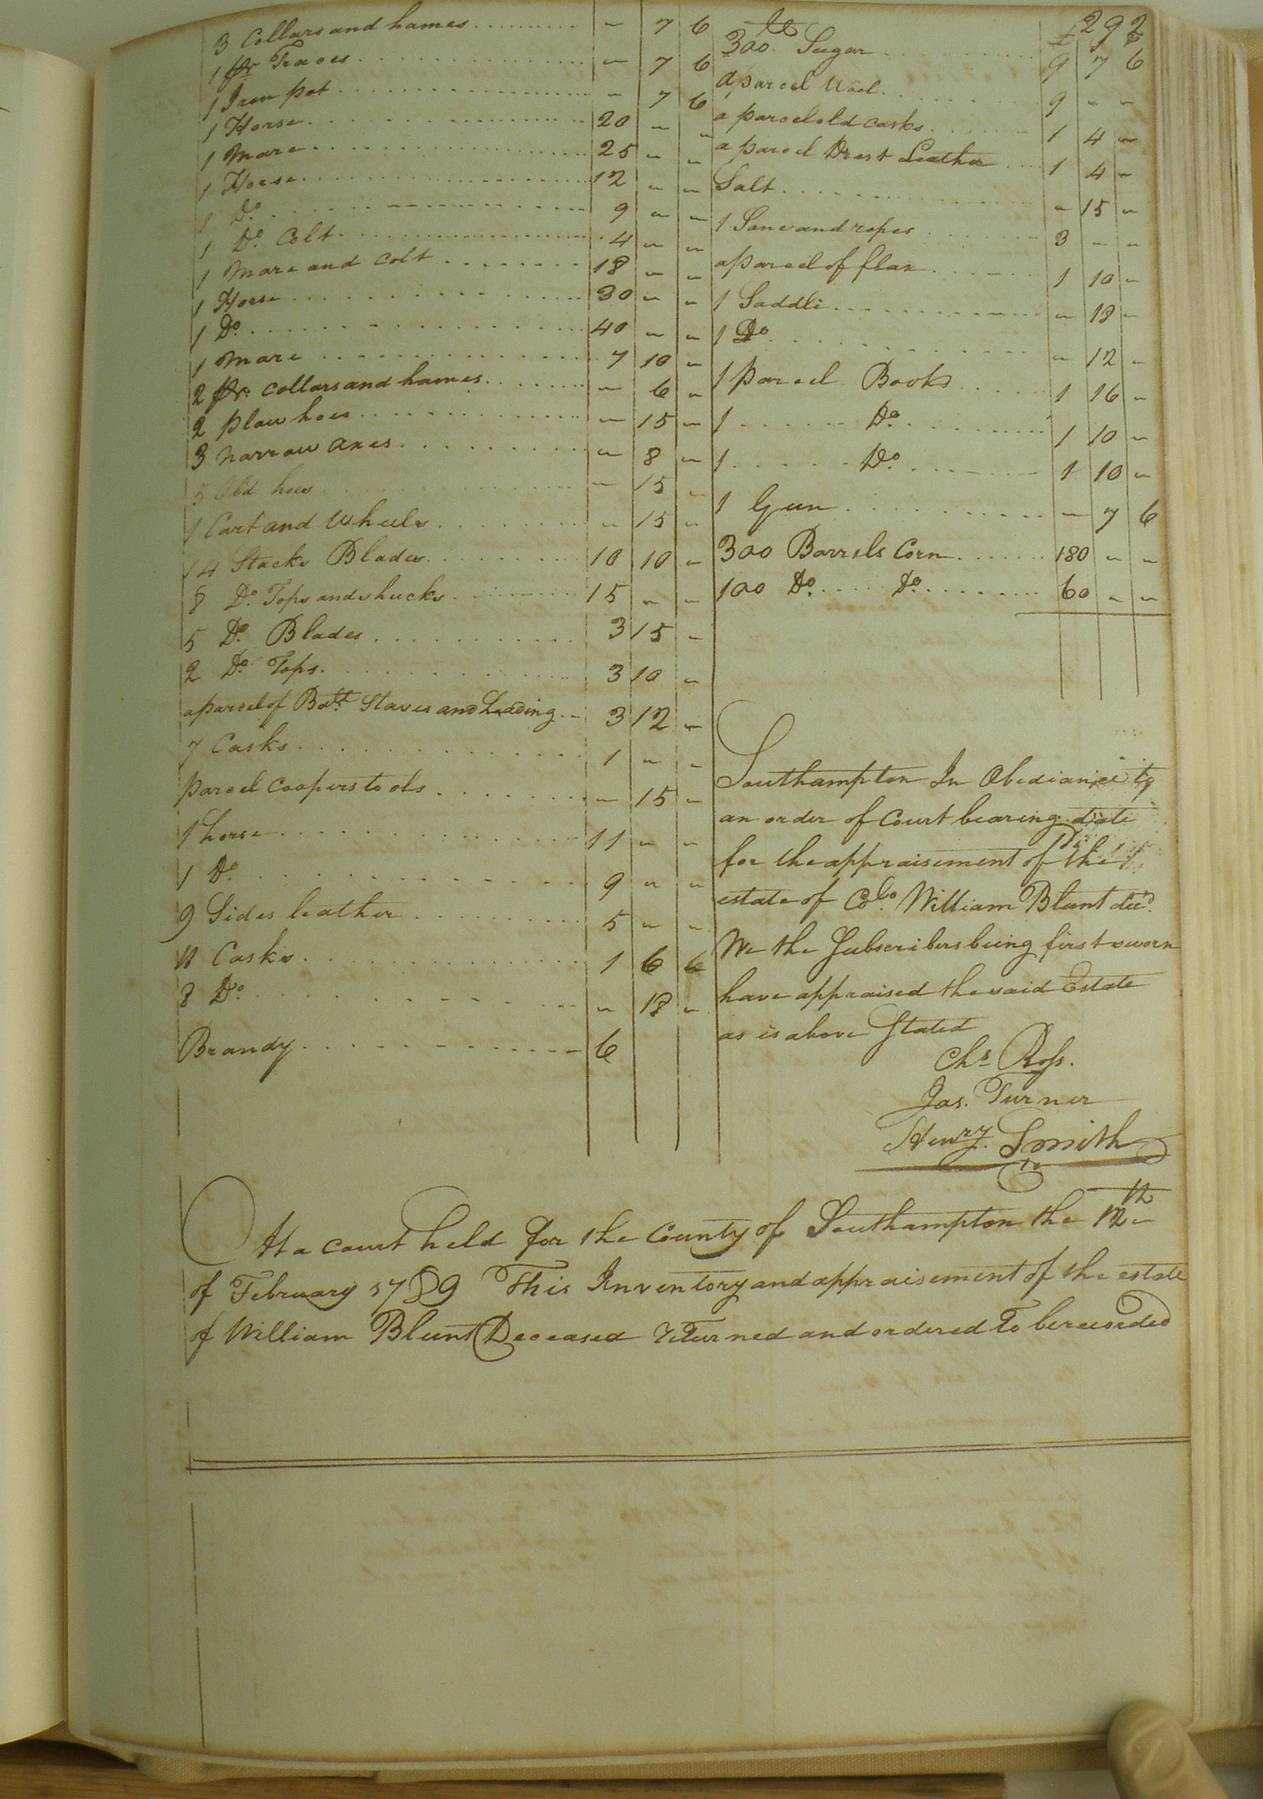 292
3 Collars and hames - 7 6
1 pr Traces - 7 6
1 Iron pot - 7 6
1 Horse 20 - -
1 Mare 25 - -
1 Horse 12 - -
1 Do 9 - -
1 Do Colt 4 - -
1 Mare and Colt 18 - -
1 Horse 30 - -
1 Do 40 - -
1 Mare 7 10 -
2 pr. Collars and hames - 6 -
2 plow hoes - 15 -
3 narrow axes - 8 -
5 Old hoes - 15 -
1 Cart and Wheels - 15 -
14 Stacks Blades 10 10 -
8 Do. Tops and shucks 15 - -
5 Do. Blades 3 15 -
2 Do Tops. 3 10 -
a parcel of Staves and Heading 3 12 -
7 Casks 1 - -
parcel coopers tools - 15 -
1 horse 11 - -
1 Do 9 - -
9 Sides leather 5 - -
11 Casks 1 6 6
8 Do. - 18 -
Brandy 6
300 lb Sugar £ 9 7 6
a parcel Wool 9 - -
a parcel old casks 1 4 -
a parcel Drest Leather 1 4 -
Salt - 15 -
1 Sane and ropes 3 - -
a parcel of flax 1 10 -
1 Saddle - 18 -
1 Do - 12 -
1 parcel Books 1 16 -
1 Do. 1 10 -
1 Do. 1 10 -
1 Gun - 7 6
300 Barrels Corn 180 - -
100 Do. Do. 60 - -
Southampton In Obediance to
an order of Court bearing date
for the appraisement of the
estate of Colo. William Blunt decd.
We the Subscribers being first sworn
have appraised the said Estate
as is above Stated
Chs Ross.
Jas. Turner
Henry. Smith
At a Court held for the County of Southampton the 12th
of February 1789 This Inventory and appraisement of the estate
of William Blunt Deceased returned and ordered To be recorded